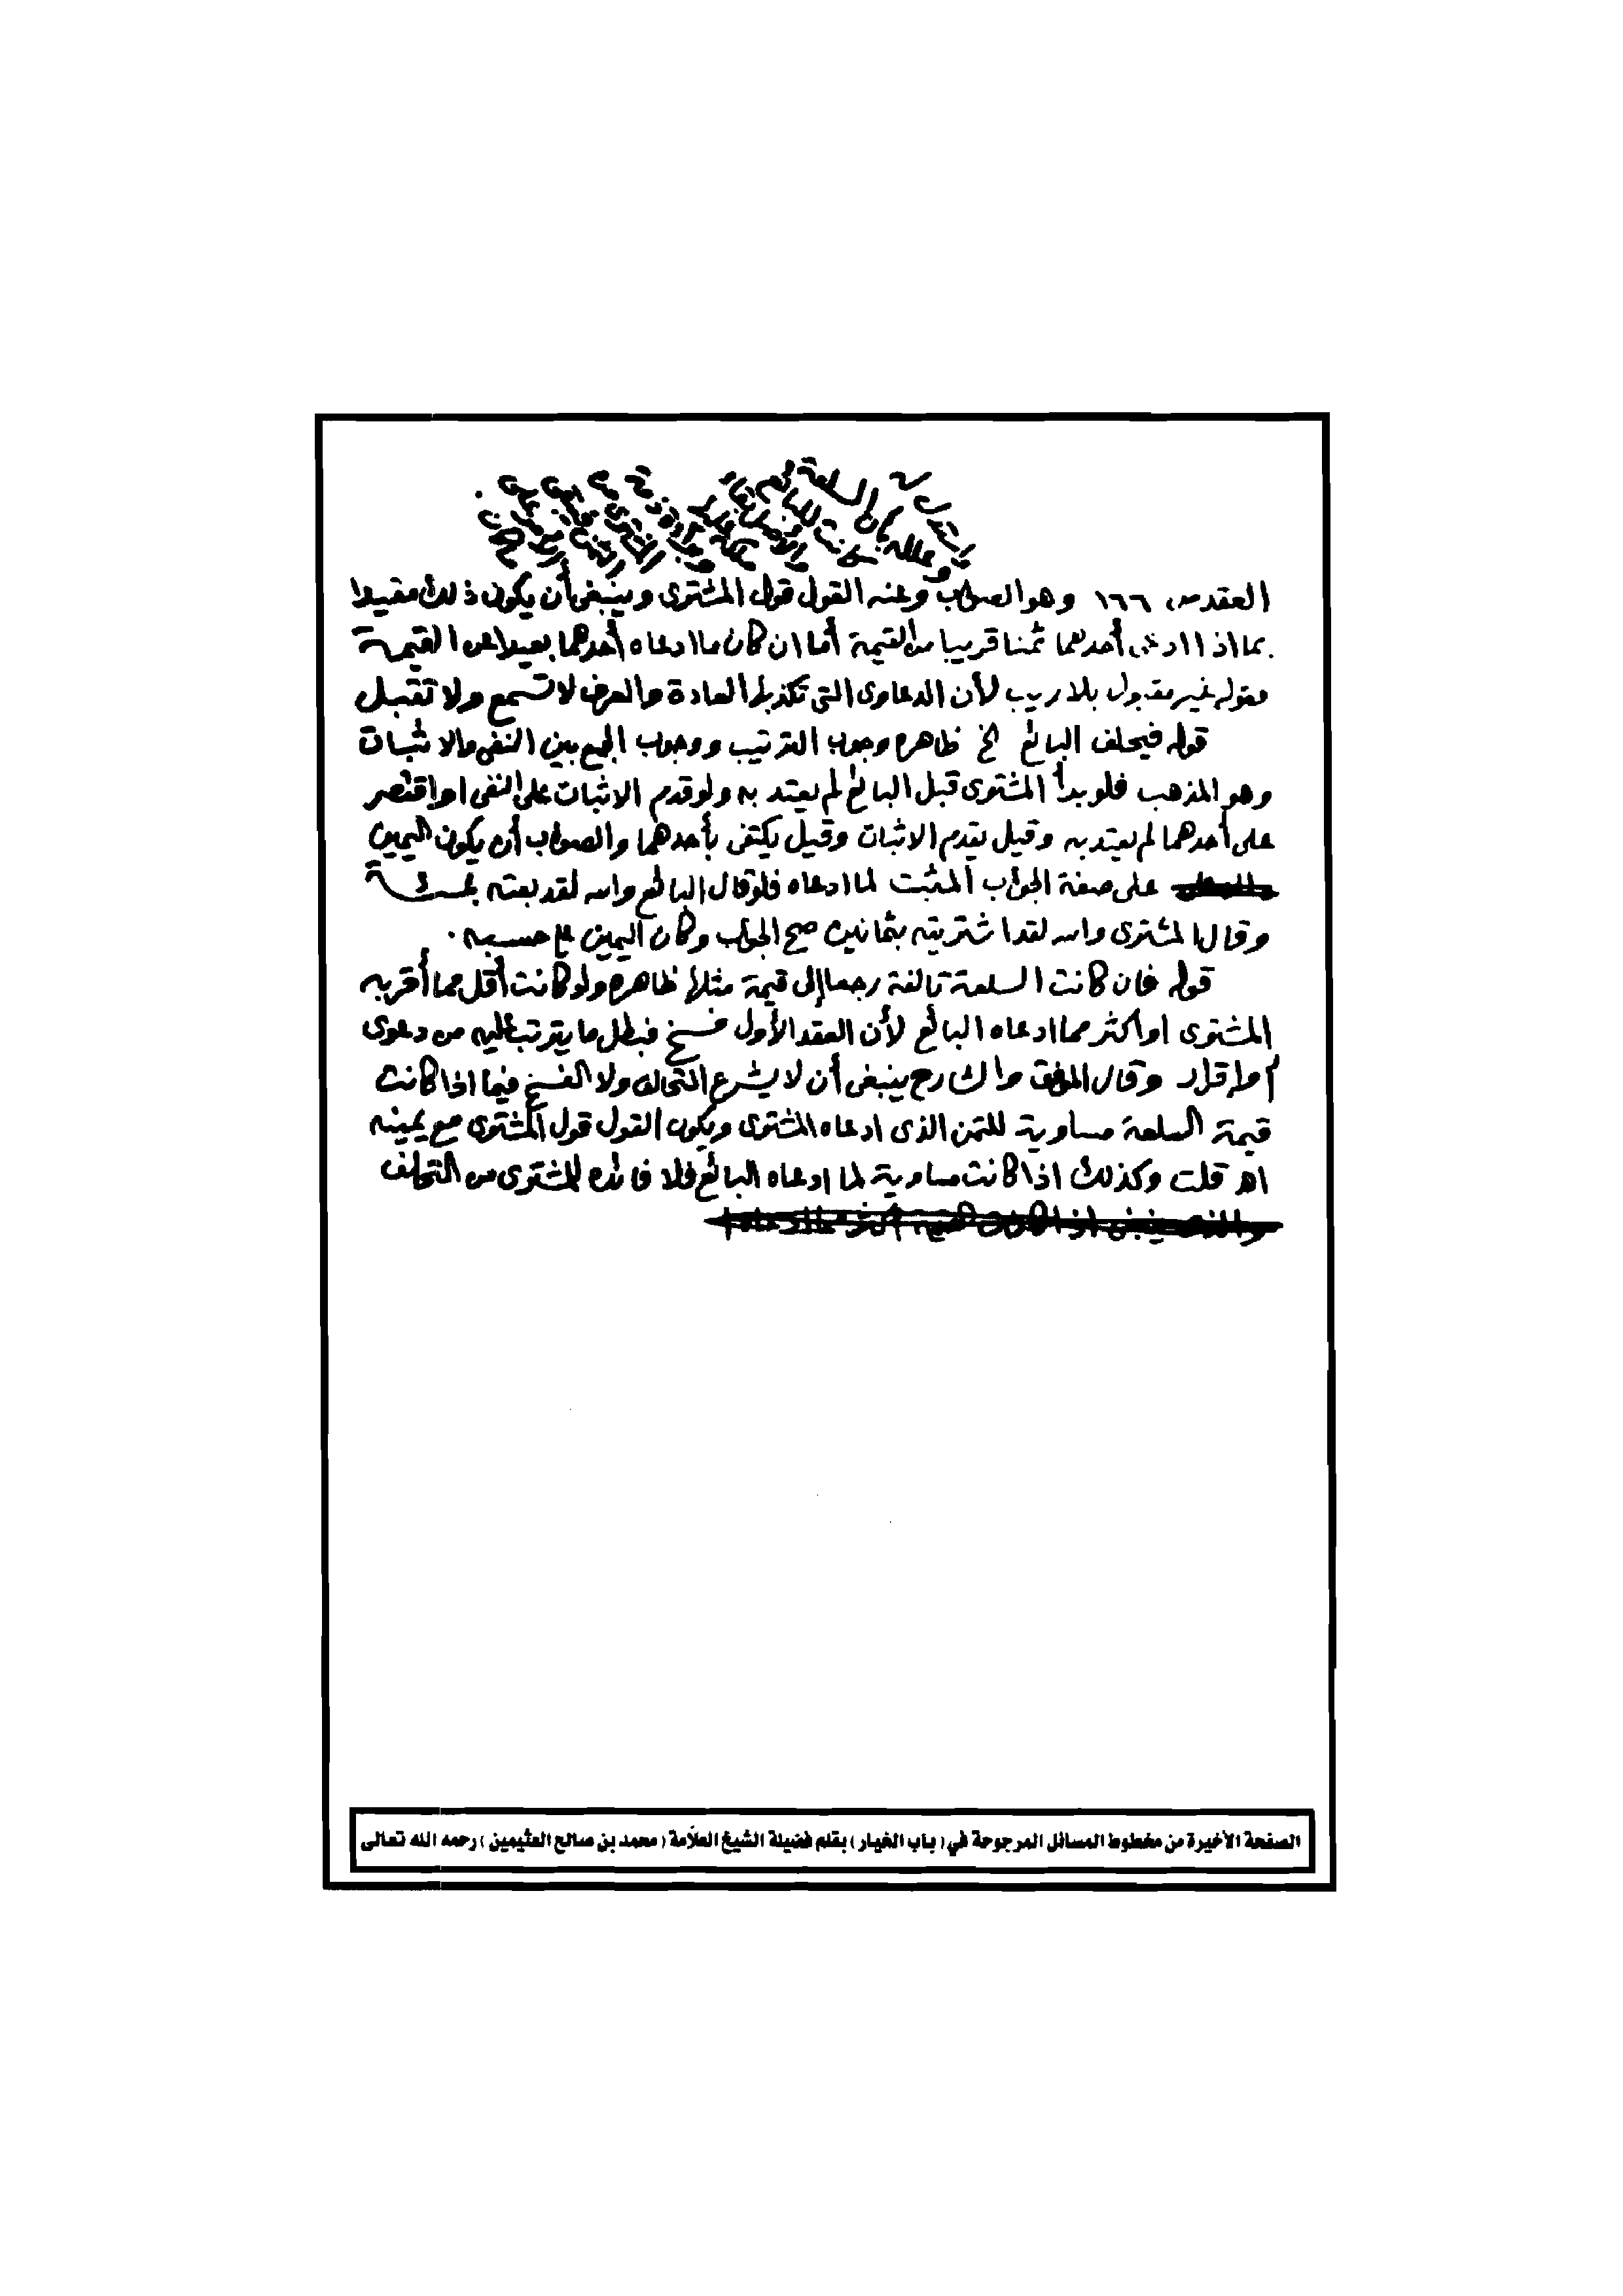 العقد ص ١٦٦ وهو الصواب وعنه القول قول المشترى وينبغى أن يكون ذلك مقيدا
بما اذا ادعى أحدهما ثمنا قريبا من القيمة أما ان كان ما ادعاه أحدهما بعيدا عن القيمة
فقوله غير مقبول بلا ريب لأن الدعاوى التى تكذبها العادة والعرف لا تسمع ولا تقبل
قوله فيحلف البائع الخ ظاهره وجوب الترتيب ووجوب الجمع بين النفى والاثبات
وهو المذهب فلو بدأ المشترى قبل البائع لم يعتد به ولو قدم الاثبات على النفى او اقتصر
على أحدهما لم يعتد به وقيل يقدم الاثبات وقيل يكتفى بأحدهما والصواب أن يكون اليمين
على صفة الجواب المثبت لما ادعاه فلو قال البائع والله لقد بعته بمئة
وقال المشترى والله لقد اشتريته بثمانين صح الجواب وكان اليمين على حسبه .
قوله فان كانت السلعة تالفة رجعا إلى قيمة مثلها ظاهره ولو كانت أقل مما أقر به
المشترى او أكثر مما ادعاه البائع لأن العقد الأول فسخ فبطل ما يترتب عليه من دعوى
أو إقرار وقال الموفق والشارح ينبغى أن لا يشرع التحالف ولا الفسخ فيما اذا كانت
قيمة السلعة مساوية للثمن الذى ادعاه المشترى ويكون القول قول المشترى مع يمينه
اهـ قلت وكذلك اذا كانت مساوية لما ادعاه البائع فلا فائده للمشترى من التحالف
الصفحة الأخيرة من مخطوط المسائل المرجوحة في ( باب الخيار ) بقلم فضيلة الشيخ العلّامة ( محمد بن صالح العثيمين ) رحمه الله تعالى